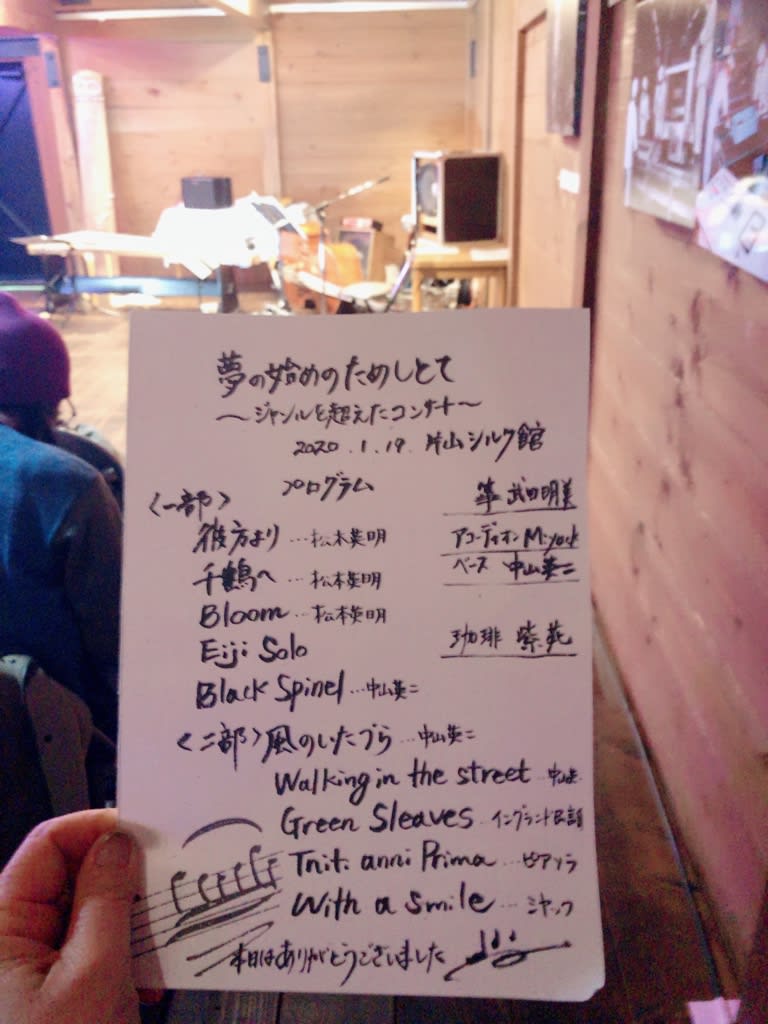 夢の始めのためしとて
～ジャンルを超えたコンサート～
2020.1.19. 片山シルク館
プログラム
箏 武田明美
アコーディオン Miyack
ベース 中山英二
珈琲 紫苑
＜一部＞
彼方より …松本英明
千鶴へ …松本英明
Bloom …松本英明
Eiji Solo
Black Spinel …中山英二
＜二部＞風のいたづら …中山英二
Walking in the street …中山英
Green Sleaves …イングランド民謡
Tnit. anni Prima …ピアソラ
With a smile …ミヤック
本日はありがとうございました